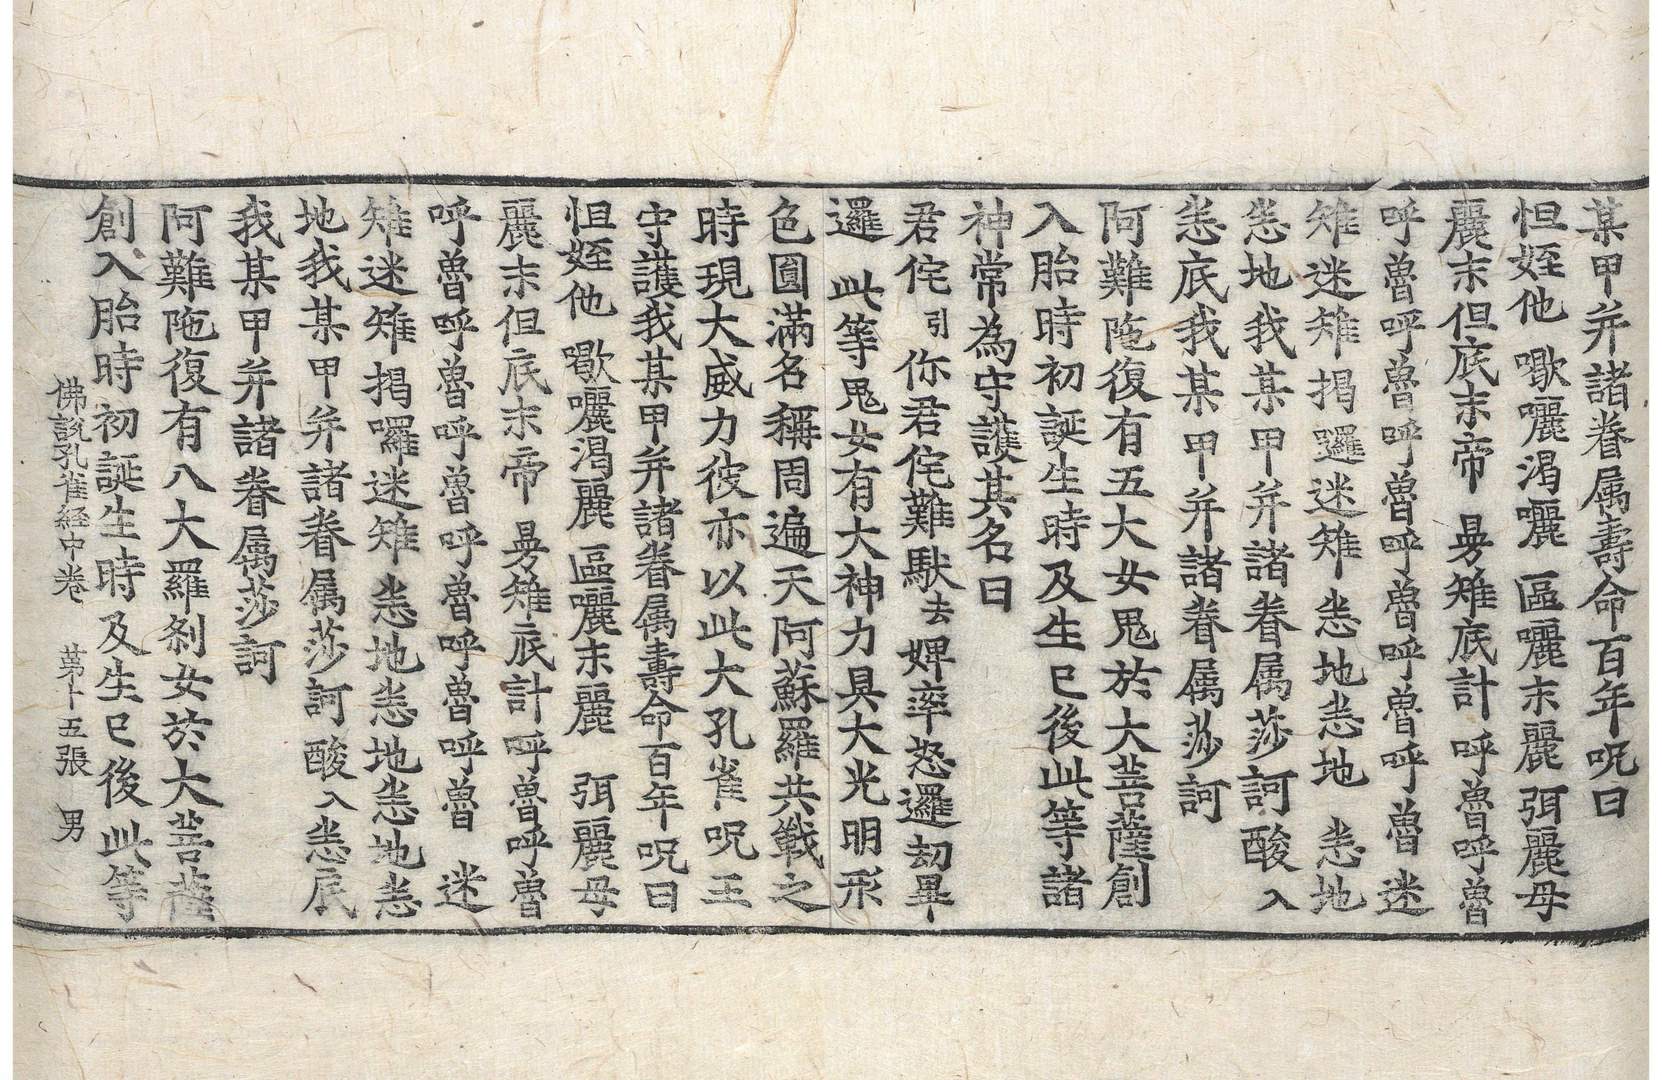 某甲并諸眷属壽命百年呪曰
怛姪他 㗿㘑渴㘑 區㘑末麗 弭麗母
麗末但底末帝 曼雉底計 呼魯呼魯
呼魯呼魯呼魯呼魯呼魯呼魯 迷
雉迷雉揭邏迷雉 恙地恙地 恙地
恙地我某甲并諸眷属莎訶 酸入
恙底我某甲并諸眷属莎訶
阿難陁復有五大女鬼於大菩薩創
入胎時初誕生時及生已後此等諸
神常為守護其名曰
君侘引你君侘難馱去婢率怒邏刧畢
邏 此等鬼女有大神力具大光明形
色圓滿名稱周遍天阿蘇羅共戰之
時現大威力彼亦以此大孔雀呪王
守護我某甲并諸眷属壽命百年呪曰
怛姪他 㗿㘑渴麗 區㘑末麗 弭麗母
麗末但底末帝 曼雉底計 呼魯呼魯
呼魯呼魯呼魯呼魯呼魯呼魯 迷
雉迷雉揭囉迷雉 恙地恙地恙地恙
地我某甲并諸眷属莎訶 酸入恙底
我某甲并諸眷属莎訶
阿難陁復有八大羅剎女於大菩薩
創入胎時初誕生時及生已後此等
佛說孔雀経中卷 第十五張 男